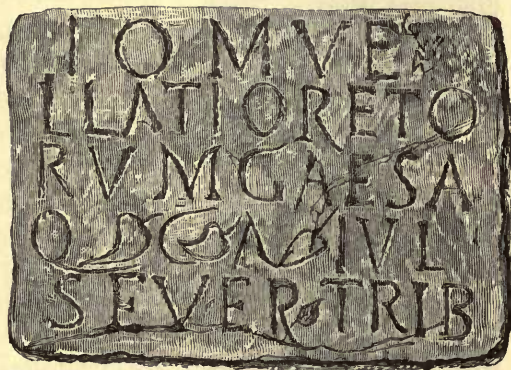 I O M VE
LLATIORETO
RVMGAESA
Q C A IVL
SEVER TRIB